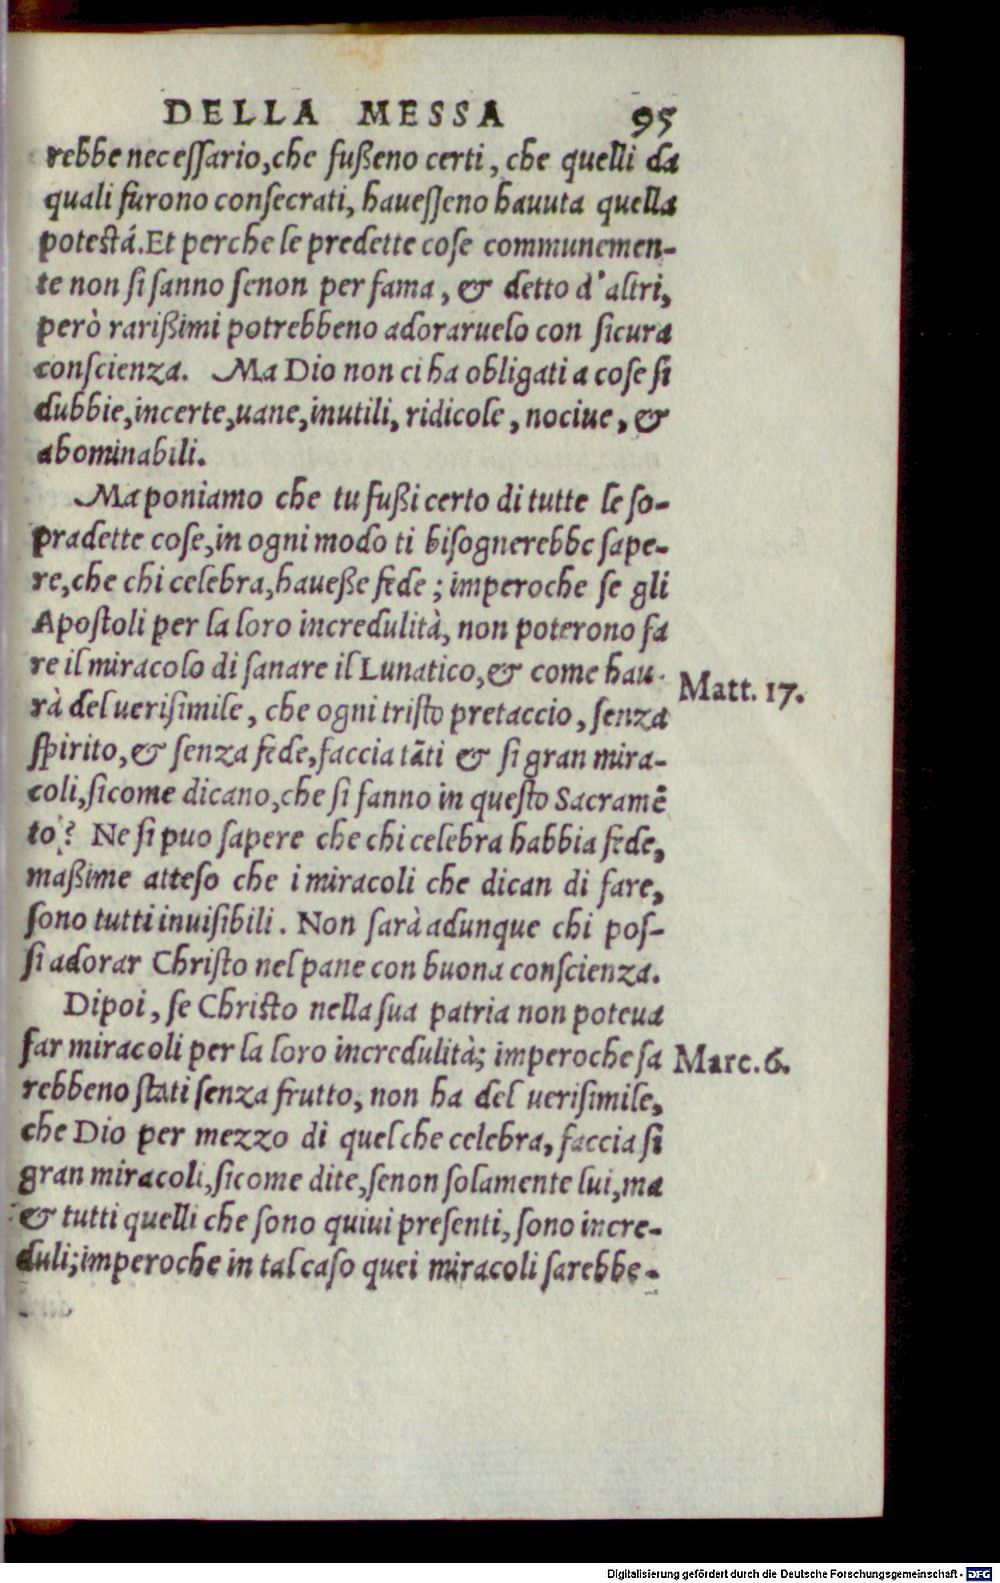 DELLA MESSA 95
rebbe necessario, che fußeno certi, che quelli da
quali furono consecrati, havesseno havuta quella
potestá. Et perche le predette cose communemen-
te non si sanno senon per fama, & detto d'altri,
però rarißimi potrebbeno adorarvelo con sicura
conscienza. Ma Dio non ci ha obligati a cose si
dubbie, incerte, uane, inutili, ridicole, nociue, &
abominabili.
Ma poniamo che tu fußi certo di tutte le so-
pradette cose, in ogni modo ti bisognerebbe sape-
re, che chi celebra, haueße fede; imperoche se gli
Apostoli per la loro incredulità, non poterono fa
re il miracolo di sanare il Lunatico, & come hau-
rà del uerisimile, che ogni tristo pretaccio, senza
spirito, & senza fede, faccia tãti & si gran mira-
coli, sicome dicano, che si fanno in questo Sacramẽ
to? Ne si puo sapere che chi celebra habbia fede,
maßime atteso che i miracoli che dican di fare,
sono tutti inuisibili. Non sarà adunque chi pos-
si adorar Christo nel pane con buona conscienza.
Dipoi, se Christo nella sua patria non poteua
far miracoli per la loro incredulità; imperoche sa
rebbeno stati senza frutto, non ha del uerisimile,
che Dio per mezzo di quel che celebra, faccia si
gran miracoli, sicome dite, senon solamente lui, ma
& tutti quelli che sono quiui presenti, sono incre-
duli; imperoche in tal caso quei miracoli sarebbe-
Matt. 17.
Marc. 6.
Digitalisierung gefördert durch die Deutsche Forschungsgemeinschaft - DFG